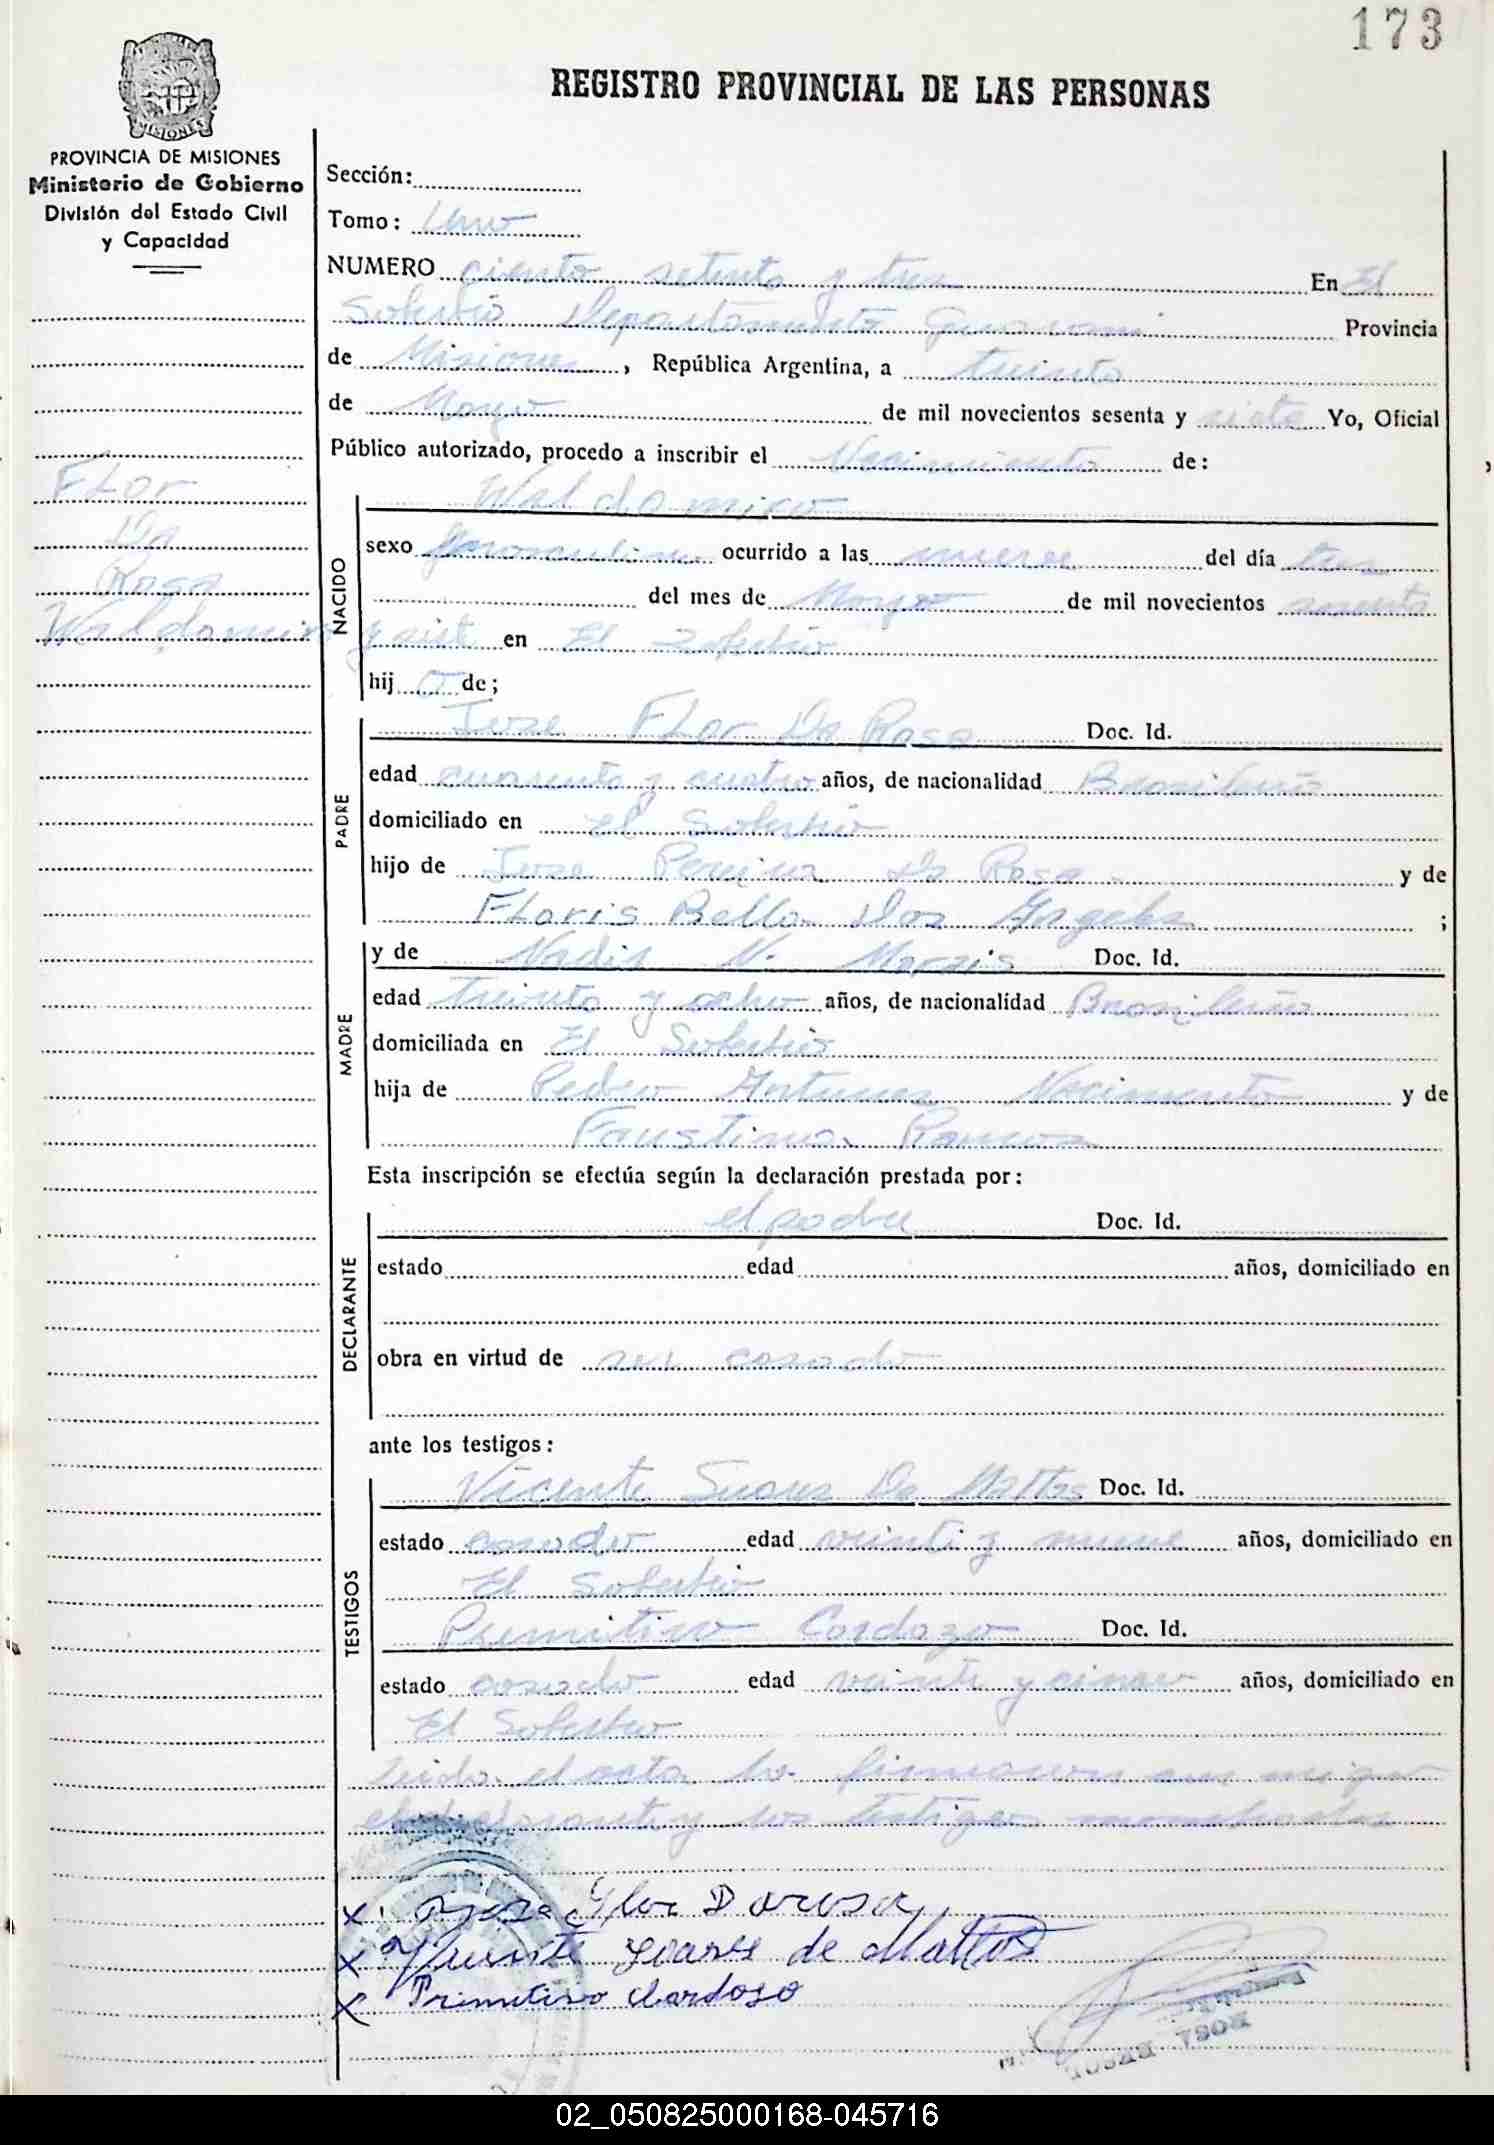 173
REGISTRO PROVINCIAL DE LAS PERSONAS
MISIONES
PROVINCIA DE MISIONES
Ministerio de Gobierno
División del Estado Civil
y Capacidad
Flor
Da
Rosa
Waldomiro
Sección:
Tomo: Uno
NUMERO ciento setenta y tres En El
Soberbio Departamento Guarani Provincia
de Misiones, República Argentina, a treinta
de Mayo de mil novecientos sesenta y siete Yo, Oficial
Público autorizado, procedo a inscribir el Nacimiento de:
NACIDO
Waldomiro
sexo masculino ocurrido a las nueve del día tres
del mes de Mayo de mil novecientos sesenta
y siete en El Soberbio
hij o de;
PADRE
Jose Flor Da Rosa Doc. Id.
edad cuarenta y cuatro años, de nacionalidad Brasileño
domiciliado en El Soberbio
hijo de Jose Pereira Da Rosa y de
Floris Bella Dos Angeles ;
MADRE
y de Nadir N. Morais Doc. Id.
edad treinta y ocho años, de nacionalidad Brasileña
domiciliada en El Soberbio
hija de Pedro Antunes Nacimento y de
Faustina Ramos
Esta inscripción se efectúa según la declaración prestada por:
DECLARANTE
el padre Doc. Id.
estado edad años, domiciliado en
obra en virtud de ser casado
ante los testigos:
TESTIGOS
Vicente Suares De Mattos Doc. Id.
estado casado edad veinti y nueve años, domiciliado en
El Soberbio
Primitivo Cardozo Doc. Id.
estado casado edad veinte y cinco años, domiciliado en
El Soberbio
leida el acta la firmaron con migo
el declarante y los testigos nombrados
x Jose Flor Darosa
x Vicente Soares de Mattos
x Primitivo Cardoso
02_050825000168-045716